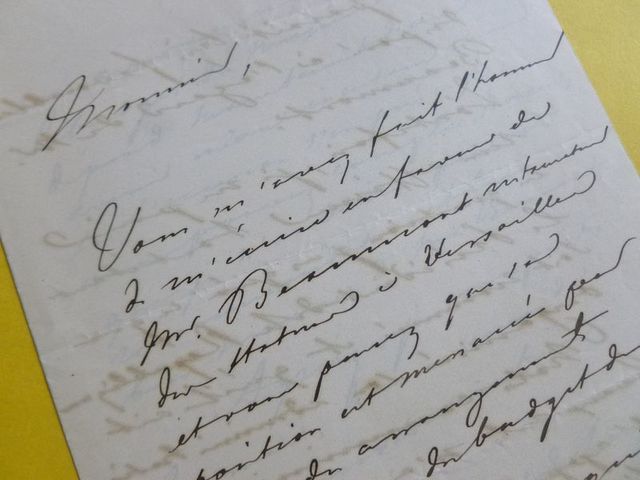 Monsieur,
Vous m'avez fait l'honneur
de m'écrire en faveur de
Mr. Beaumont
des à Versailles
et vous pensez que sa
position est menacée par
des arrangements
du budget de